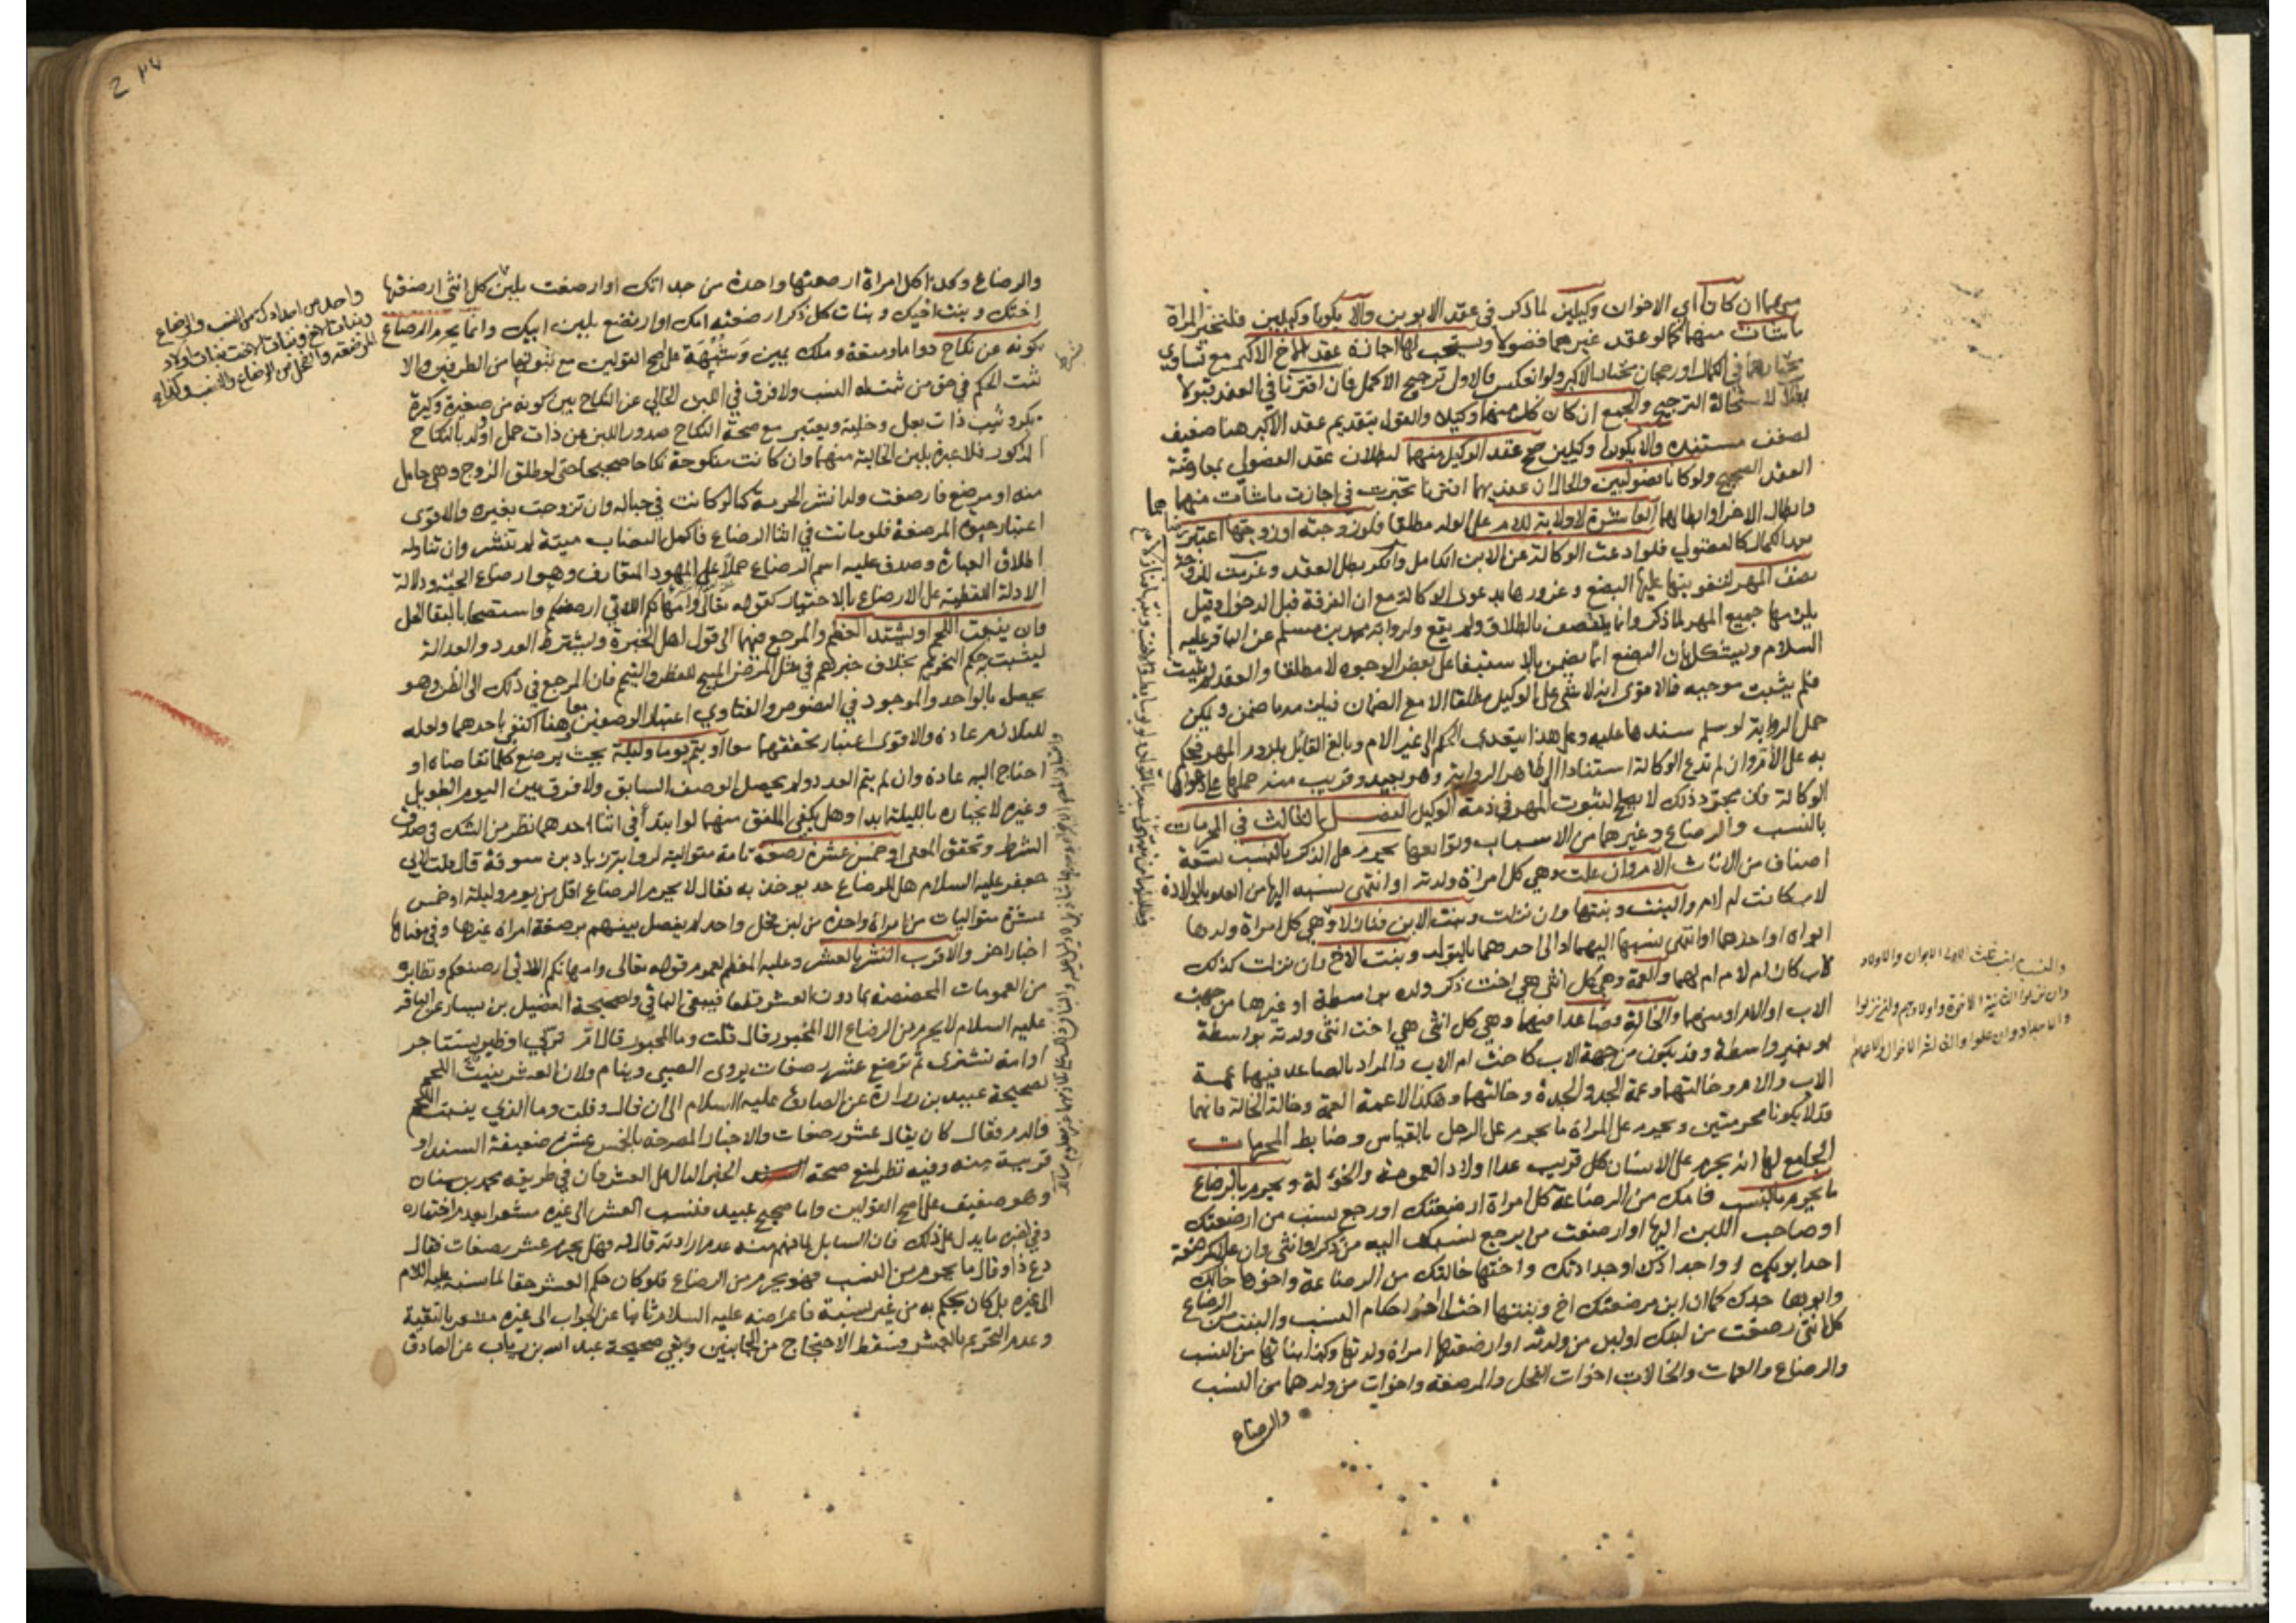 منهما ان كانا اي الاخوان وكيلين لما ذكر في عقد الابوين والا يكونا وكيلين فلتتخير المراة
ما شاءت منهما كما لو عقد غيرهما فضولا ويستحب لها اجازة عقد الاخ الاكبر مع تساوي
مختارهما في الكمال او رجحان مختار الاكبر ولو انعكس فالاولى ترجيح الاكمل فان اقترنا في العقد قبولا
بطلا لاستحالة الترجيح والجمع ان كان كل منهما وكيلا والقول بتقديم عقد الاكبر هنا ضعيف
لضعف مستنده والا يكونا وكيلين صح عقد الوكيل منهما لبطلان عقد الفضولي بمعارضة
العقد الصحيح ولو كانا فضوليين والحال ان عقديهما اقترنا تخيرت في اجازة ما شاءت منهما
وابطال الاخر او ابطالهما العاشرة لا ولاية للام على الولد مطلقا فلو زوجته او زوجتها اعتبر رضاهما
بعد الكمال كالفضولي فلو ادعت الوكالة عن الابن الكامل وانكر بطل العقد وغرمت للزوجة
نصف المهر لتفويتها عليها البضع وغرورها بدعوى الوكالة مع ان الفرقة قبل الدخول وقيل
يلزمها جميع المهر لما ذكر وانما ينتصف بالطلاق ولم يقع ولرواية محمد بن مسلم عن الباقر عليه
السلام ويشكل بان البضع انما يضمن بالاستيفاء على بعض الوجوه لا مطلقا والعقد لم يثبت
فلم يثبت موجبه فالاقوى انه لا شئ على الوكيل مطلقا الا مع الضمان فيلزمه ما ضمن ويمكن
حمل الرواية لو سلم سندها عليه وعلى هذا يتعدى الحكم الى غير الام وبالغ القائل بلزوم المهر فحكم
به على الام وان لم تدع الوكالة استنادا الى ظاهر الرواية وهو بعيد وقريب منه حملها على دعواها
الوكالة فان مجرد ذلك لا يصلح لثبوت المهر في ذمة الوكيل الفصل الثالث في المحرمات
بالنسب والرضاع وغيرهما من الاسباب وتوابعها يحرم على الذكر بالنسب تسعة
اصناف من الاناث الام وان علت وهي كل امراة ولدته او انتهى نسبه اليها من العلو بالولادة
لاب كانت ام لام والبنت وبنتها وان نزلت وبنت الابن فنازلا وهي كل امراة ولدها
ابواه او احدهما او انتهى نسبها اليهما او الى احدهما بالتولد وبنت الاخ وان نزلت كذلك
لاب كان ام لام ام لهما والعمة وهي كل انثى هي اخت ذكر ولده بواسطة او غيرها من جهة
الاب او الام او منهما والخالة فصاعدا فيهما وهي كل انثى هي اخت انثى ولدته بواسطة
او بغير واسطة وقد يكون من جهة الاب كاخت ام الاب والمراد بالصاعد فيهما عمة
الاب والام وخالتهما وعمة الجد والجدة وخالتهما وهكذا لا عمة العمة وخالة الخالة فانهما
قد لا يكونا محرمتين ويحرم على المراة ما يحرم على الرجل بالقياس وضابط المحرمات
الجامع لها انه يحرم على الانسان كل قريب عدا اولاد العمومة والخؤلة ويحرم بالرضاع
ما يحرم بالنسب فامك من الرضاعة كل امراة ارضعتك او رجع نسب من ارضعتك
او صاحب اللبن اليها او ارضعت من يرجع نسبك اليه من ذكر او انثى وان علا كمرضعة
احد ابويك او اجدادك او جداتك واختها خالتك من الرضاعة واخوها خالك
وابوها جدك كما ان ابن مرضعتك اخ وبنتها اخت الى اخر احكام النسب والبنت من الرضاع
كل انثى رضعت من لبنك او لبن من ولدته او ارضعتها امراة ولدتها وكذا بناتها من النسب
والرضاع والعمات والخالات اخوات الفحل والمرضعة واخوات من ولدهما من النسب
والرضاع
والرضاع وكذا كل امراة ارضعتها واحدة من جداتك او ارضعت بلبن
واحد من اجدادك من النسب والرضاع
وبنات الاخ وبنات الاخت بنات اولاد
المرضعة والفحل من الرضاع والنسب وكذا
كل انثى ارضعتها
اختك وبنت اخيك وبنات كل ذكر ارضعته امك او ارتضع بلبن ابيك وانما يحرم الرضاع
بكونه عن نكاح دواما ومتعة وملك يمين وشبهة على اصح القولين مع ثبوتها من الطرفين والا
ثبت الحكم في حق من ثبت له النسب ولا فرق في اللبن الخالي عن النكاح بين كونه من صغيرة وكبيرة
بكر وثيب ذات بعل وخلية ويعتبر مع صحة النكاح صدور اللبن عن ذات حمل او ولد بالنكاح
المذكور فلا عبرة بلبن الخالية منهما وان كانت منكوحة نكاحا صحيحا حتى لو طلق الزوج وهي حامل
منه او مرضع فارضعت ولدا نشر الحرمة كما لو كانت في حباله وان تزوجت بغيره والاقوى
اعتبار حيوة المرضعة فلو ماتت في اثناء الرضاع فاكمل النصاب ميتة لم تنشر وان تناوله
اطلاق العبارة وصدق عليه اسم الرضاع حملا على المعهود المتعارف وهو ارضاع الحية ودلالة
الادلة اللفظية على الارضاع بالاختيار كقوله تعالى وامهاتكم اللاتي ارضعنكم واستصحابا لبقاء الحل
وان ينبت اللحم او يشتد العظم والمرجع فيهما الى قول اهل الخبرة ويشترط العدد والعدالة
ليثبت حكم التحريم بخلاف خبرهم في مثل المرض المبيح للفطر والتيمم فان المرجع في ذلك الى الظن وهو
يحصل بالواحد والموجود في النصوص والفتاوى اعتبار الوصفين معا وهنا اكتفى باحدهما ولعله
للتلازم عادة والاقوى اعتبار تحققهما معا او يتم يوما وليلة بحيث يرضع كلما تقاضاه او
احتاج اليه عادة وان لم يتم العدد ولم يحصل الوصف السابق ولا فرق بين اليوم الطويل
وغيره لانجباره بالليلة ابدا وهل يكفي الملفق منهما لو ابتدأ في اثناء احدهما نظر من الشك في صدق
الشرط وتحقق المعنى او خمس عشرة رضعة تامة متوالية لرواية زياد بن سوقة قال قلت لابي
جعفر عليه السلام هل للرضاع حد يوخذ به فقال لا يحرم الرضاع اقل من يوم وليلة او خمس
عشرة متواليات من امراة واحدة من لبن فحل واحد لم يفصل بينهم برضعة امراة غيرها وفي معناها
اخبار اخر والاقرب النشر بالعشر وعليه المعظم لعموم قوله تعالى وامهاتكم اللاتي ارضعنكم ونظائره
من العمومات المخصصة بما دون العشر قطعا فيبقى الباقي ولصحيحة الفضيل بن يسار عن الباقر
عليه السلام لا يحرم من الرضاع الا المخبور قال قلت وما المخبور قال ام تربي او ظئر تستاجر
او امة تشترى ثم ترضع عشر رضعات يروى الصبي وينام ولان العشر ينبت اللحم
لصحيحة عبيد بن زرارة عن الصادق عليه السلام الى ان قال وقلت وما الذي ينبت اللحم
والدم فقال كان يقال عشر رضعات والاخبار المصرحة بالخمس عشرة ضعيفة السند او
قريبة منه وفيه نظر لمنع صحة الخبر الدال على العشر فان في طريقه محمد بن سنان
وهو ضعيف على اصح القولين واما صحيح عبيد فنسب العشر الى غيره مشعرا بعدم اختياره
وفي اخره ما يدل على ذلك فان السايل لما فهم منه عدم ارادته قال له فهل يحرم عشر رضعات فقال
دع ذا وقال ما يحرم من النسب فهو يحرم من الرضاع فلو كان حكم العشر حقا لما نسبه عليه السلام
الى غيره بل كان يحكم به من غير نسبة فاعراضه عليه السلام ثانيا عن الجواب الى غيره مشعر بالتقية
وعدم التحريم بالعشر فسقط الاحتجاج من الجانبين وبقي صحيحة عبد الله بن رياب عن الصادق